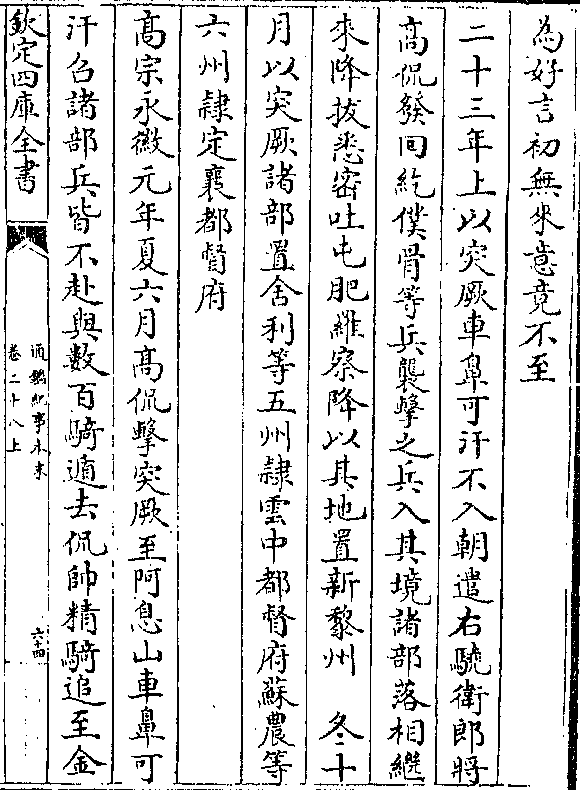 為好言初無來意竟不至
二十三年上以突厥車鼻可汗不入朝遣右驍衛郎將
高侃發回紇僕骨等兵襲擊之兵入其境諸部落相繼
來降拔悉密吐屯肥羅察降以其地置新黎州　冬十
月以突厥諸部置舍利等五州隸雲中都督府蘇農等
六州隸定襄都督府
高宗永徽元年夏六月高侃擊突厥至阿息山車鼻可
汗召諸部兵皆不赴與數百騎遁去侃帥精騎追至金
欽定四庫全書
通鑑紀事本末
卷二十八上
六十四